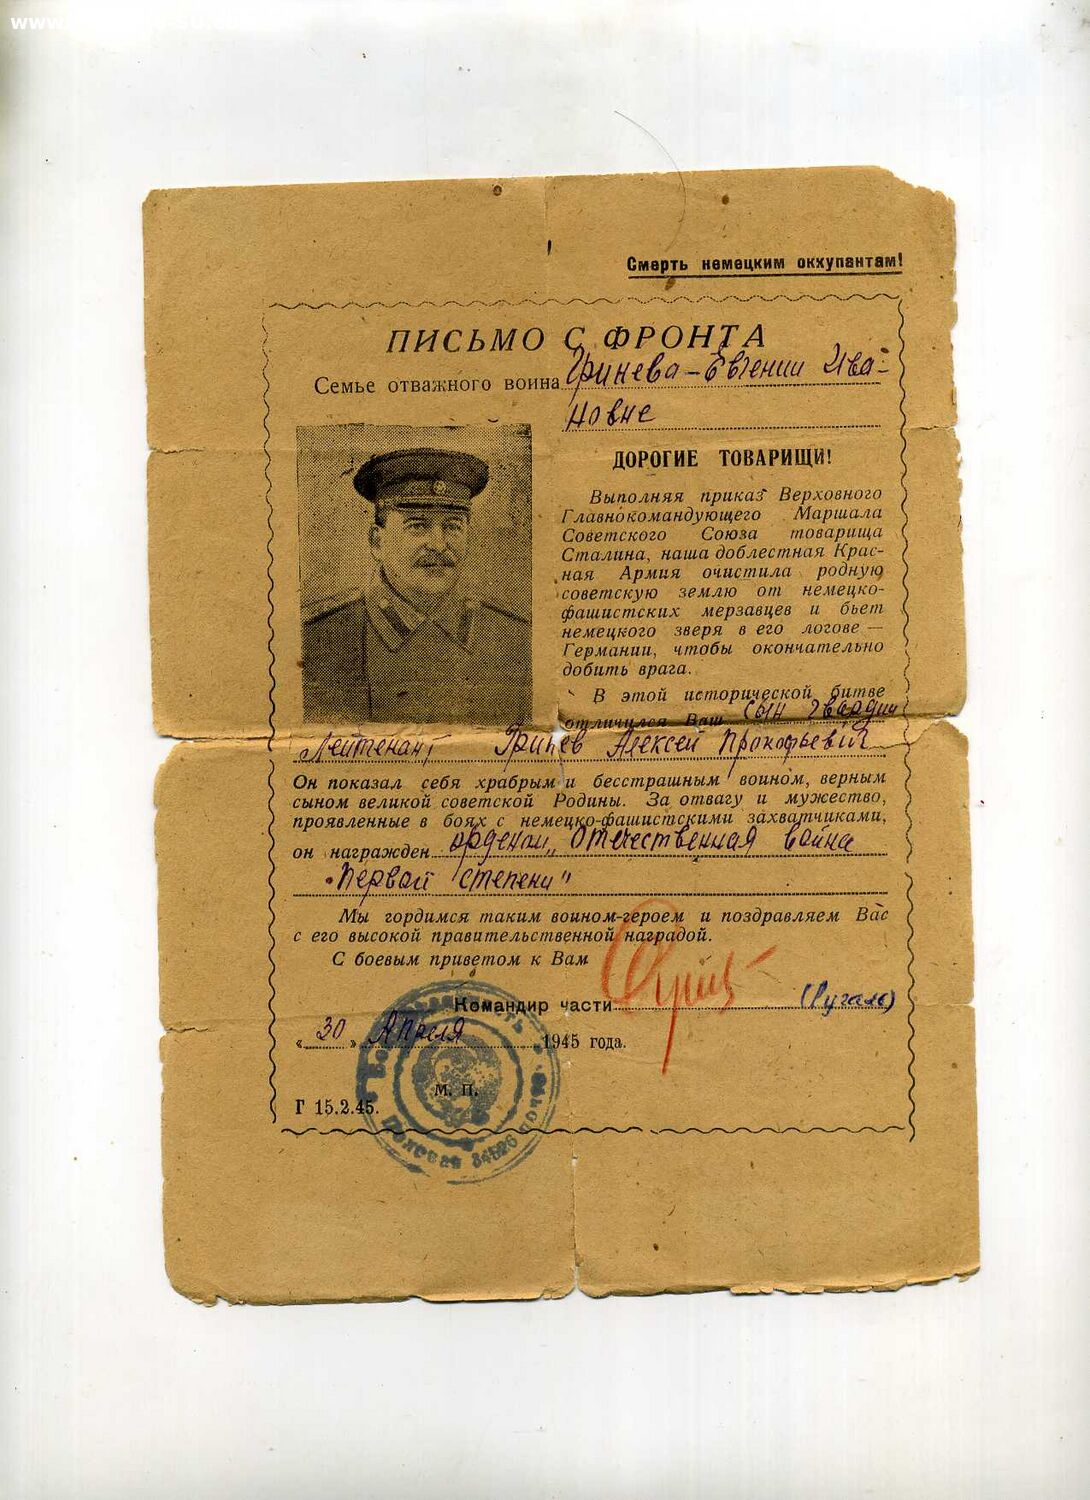 Смерть немецким оккупантам!
ПИСЬМО С ФРОНТА
Семье отважного воина Гринева – Евгении Ива-
новне
ДОРОГИЕ ТОВАРИЩИ!
Выполняя приказ Верховного
Главнокомандующего Маршала
Советского Союза товарища
Сталина, наша доблестная Крас-
ная Армия очистила родную
советскую землю от немецко-
фашистских мерзавцев и бьет
немецкого зверя в его логове —
Германии, чтобы окончательно
добить врага.
В этой исторической битве
отличился Ваш сын гвардии
Лейтенант Гринев Алексей Прокофьевич
Он показал себя храбрым и бесстрашным воином, верным
сыном великой советской Родины. За отвагу и мужество,
проявленные в боях с немецко-фашистскими захватчиками,
он награжден орденом „Отечественная война
Первой степени"
Мы гордимся таким воином-героем и поздравляем Вас
с его высокой правительственной наградой.
С боевым приветом к Вам
Командир части
«30» Апреля 1945 года.
М. П.
Г 15.2.45.
Полевая почта